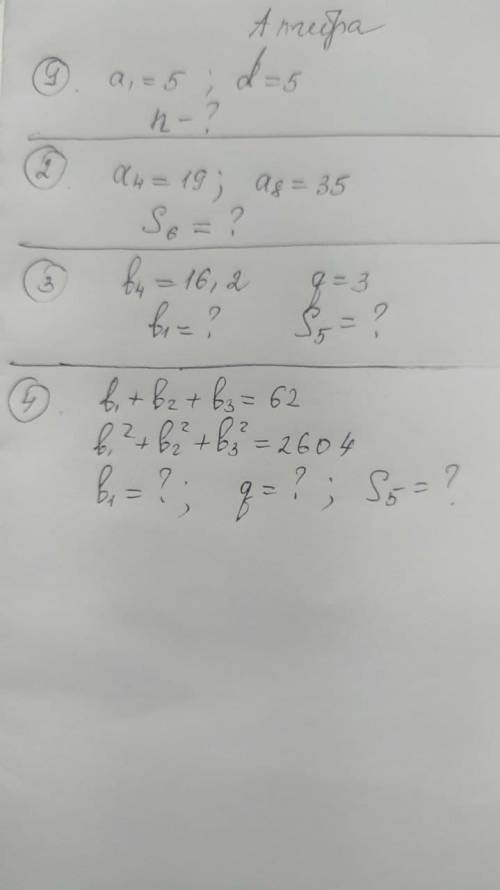 Алгебра
1. a₁ = 5 ; d = 5
n - ?
2 a₄ = 19 ; a₈ = 35
S₆ = ?
3 b₄ = 16,2 q = 3
b₁ = ? S₅ = ?
4. b₁ + b₂ + b₃ = 62
b₁² + b₂² + b₃² = 2604
b₁ = ? ; q = ? ; S₅ = ?